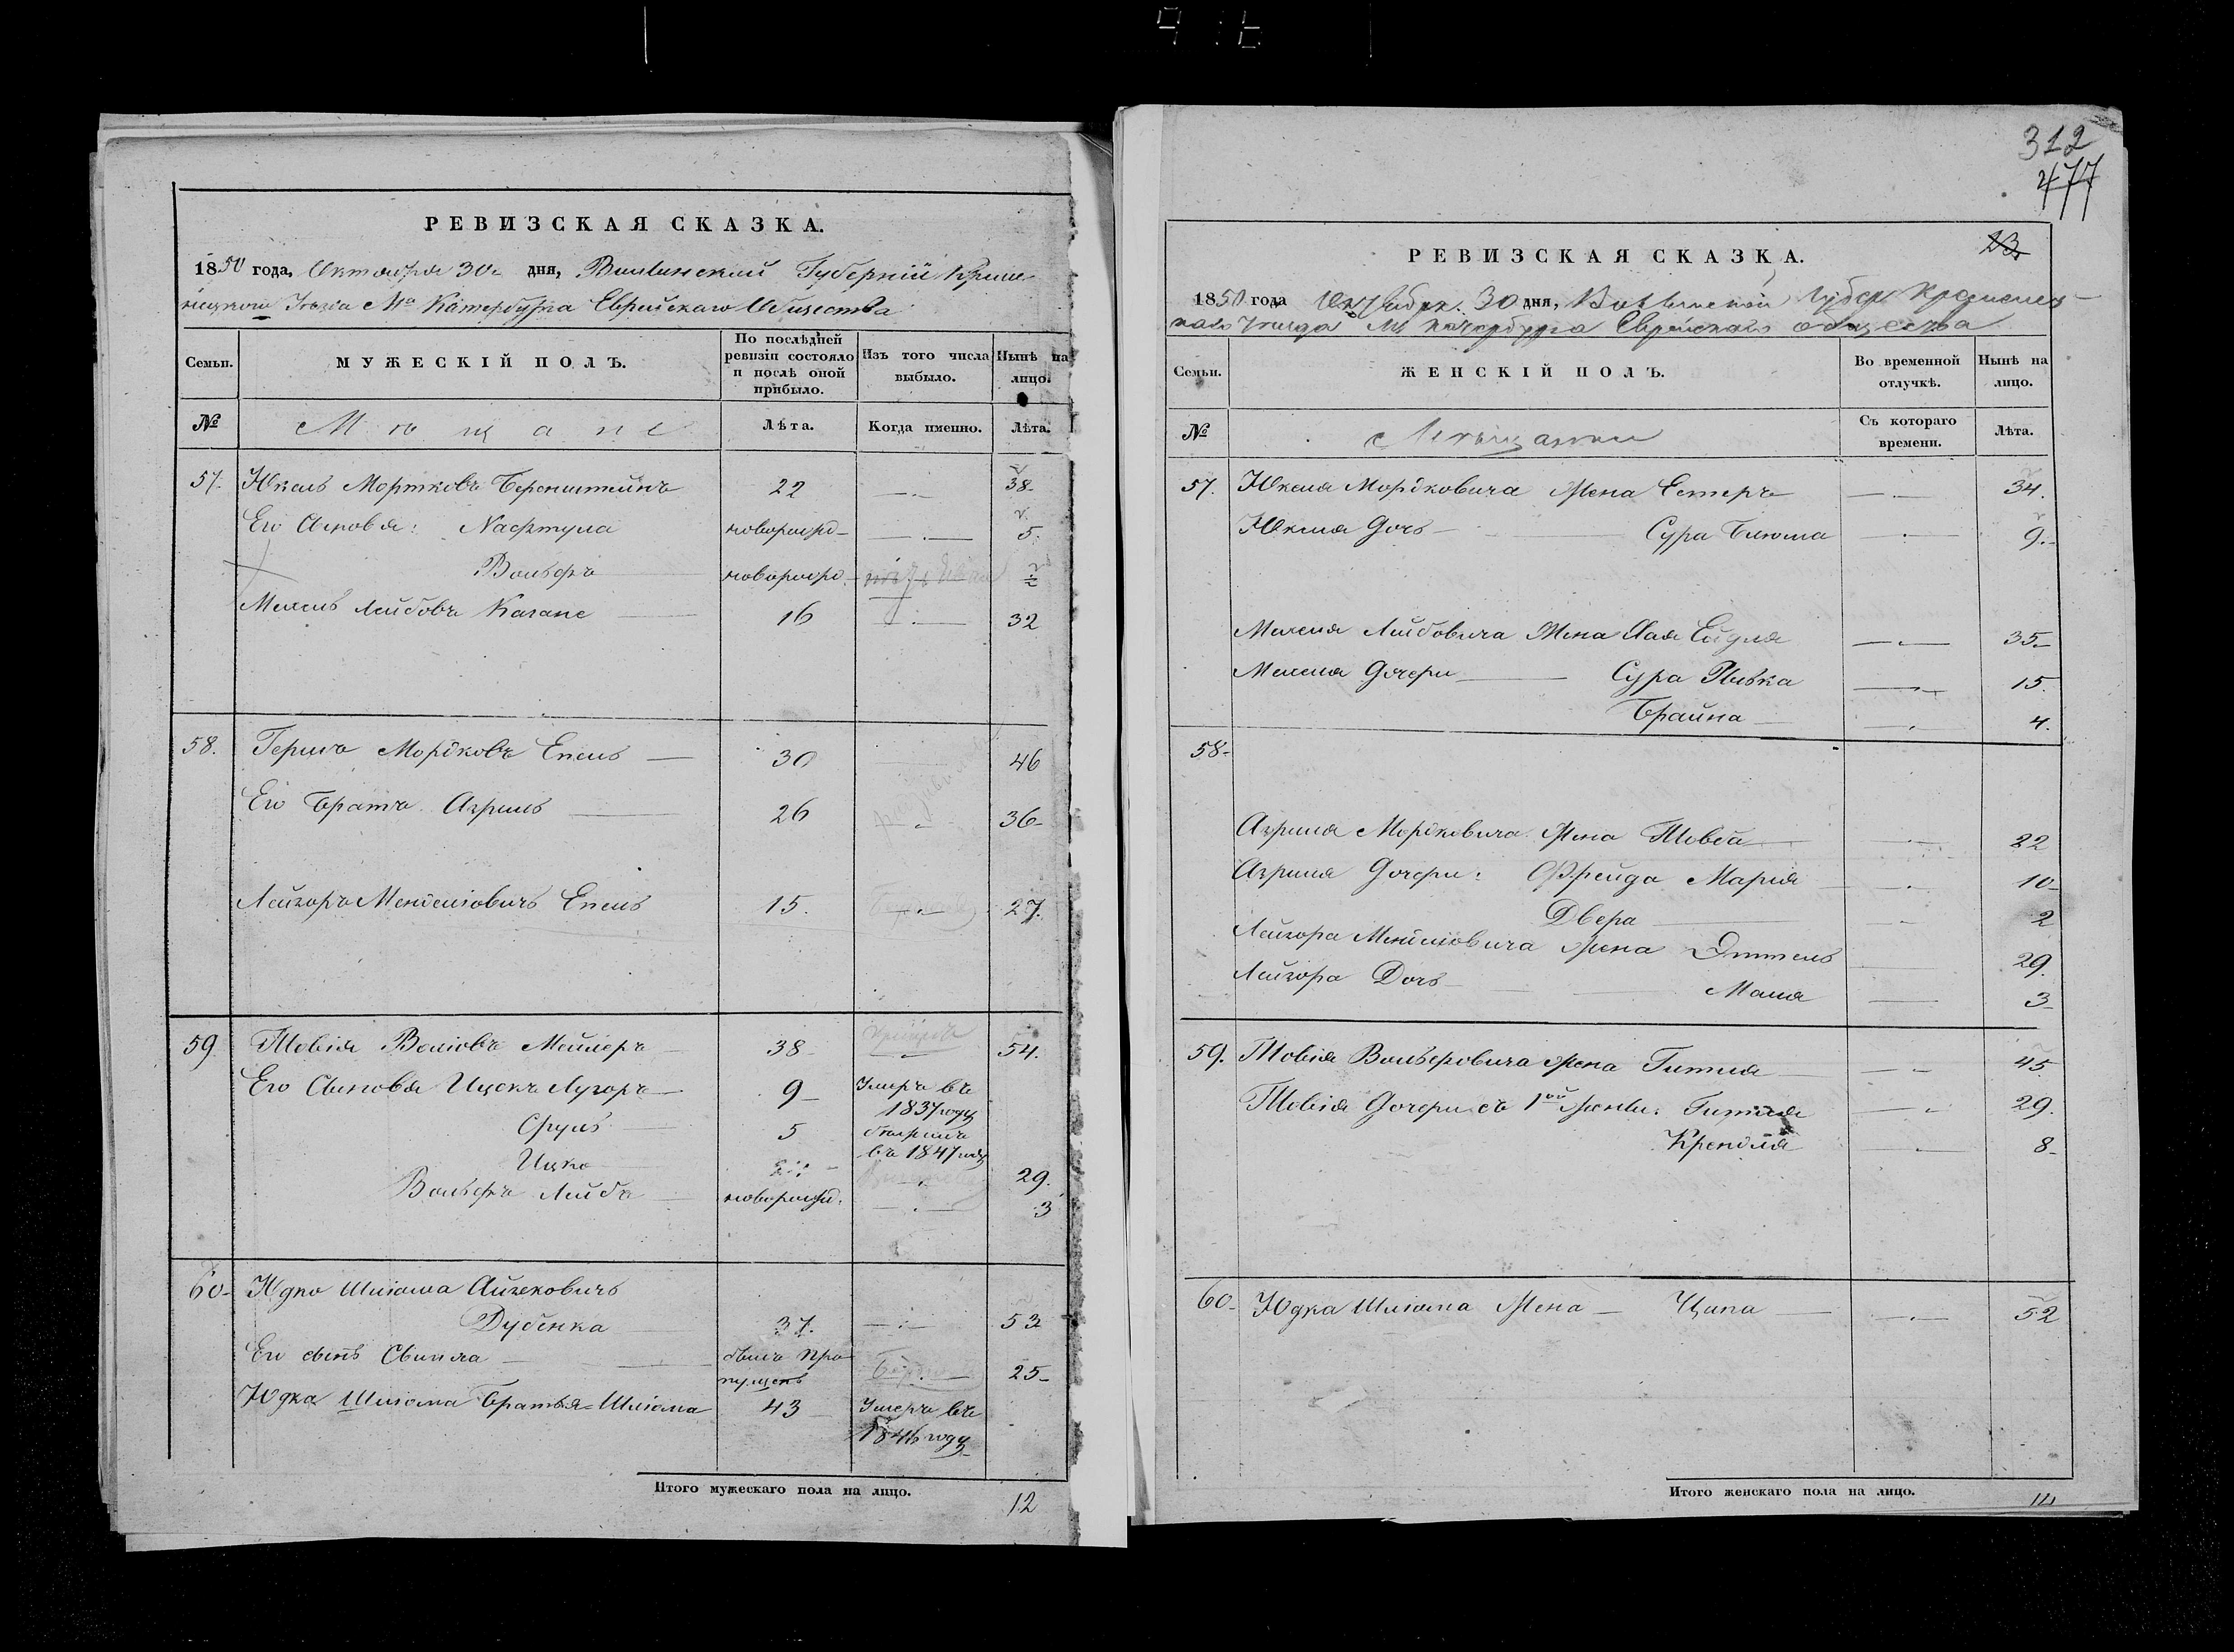 РЕВИЗСКАЯ СКАЗКА.
1850 года, Октября 30 дня, Волынской Губерніи Креме-
нецкаго Уѣзда Мка Катербурга Еврейскаго Общества
Семьи. МУЖЕСКІЙ ПОЛЪ. По послѣдней ревизіи состояло и послѣ оной прибыло. Изъ того числа выбыло. Нынѣ на лицо.
№ Мѣщане Лѣта. Когда именно. Лѣта.
57. Юкель Мортковъ Беренштейнъ 22 38
Его Сыновья: Нафтула новорожд 5.
Вольфъ новорожд.
Мехель Лейбовъ 16 32
58. Гершъ Мордковъ Епель 30 46
Его Братъ Азриль 26 36
Лейзоръ Менделіовичъ Епель 15. 27.
59 Товія Воліовъ Мейлеръ 38 54.
Его Сыновья Ицекъ Лузоръ 9 Умеръ въ 1837 году
Сруль 5 въ 1847 году
Ицко 29.
Вольфъ Лейбъ новорожд. 3
60 Юдко Шліома Айзековичъ
Дубенка 37. 53
Его сынъ былъ пропущенъ 25
Юдка Шліома Братья Шліома 43 Умеръ въ
году
Итого мужескаго пола на лицо. 12
312
477
23
РЕВИЗСКАЯ СКАЗКА.
1850 года Октября 30 дня, Волынской Губер Кременец-
каго Уѣзда М Катербурга Еврейскаго общества
Семьи. ЖЕНСКІЙ ПОЛЪ. Во временной отлучкѣ. Нынѣ на лицо.
№ Мѣщанки Съ котораго времени. Лѣта.
57. Юкеля Мордковича Жена Естеръ 34.
Юкеля Дочь Сура Блюма 9.
Мехеля Лейбовича Жена Хая Ейдля 35
Мехеля Дочери Сура Ривка 15.
Брайна 4.
58
Азриля Мордковича Жена Товба 22
Азриля Дочери: Фрейда Марія 10
Двера 2
Лейзора Менделіовича Жена Эттель 29.
Лейзора Дочь Маля 3
59. Товія Вольфовича Жена Гитля 45
Товія Дочери съ 1ой жены: Гитля 29.
Крендля 8
60 Юдка Шліома Жена Ципа 52
Итого женскаго пола на лицо. 14